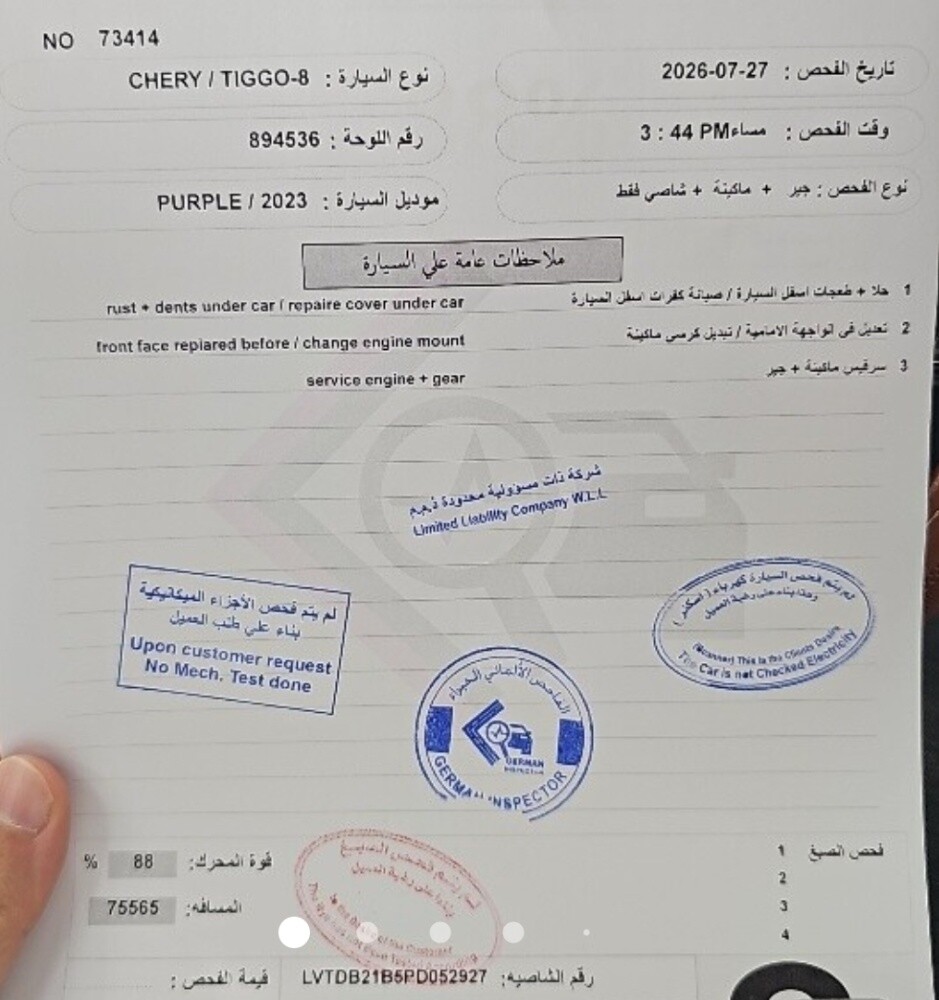 NO 73414
تاريخ الفحص : 2026-07-27
نوع السيارة : CHERY / TIGGO-8
وقت الفحص : 3 : 44 PMمساء
رقم اللوحة : 894536
نوع الفحص : جير + ماكينة + شاصي فقط
موديل السيارة : PURPLE / 2023
ملاحظات عامة علي السيارة
1 جلا + طعجات اسفل السيارة / صيانة كفرات اسفل السيارة
rust + dents under car / repaire cover under car
2 تعديل في الواجهة الامامية / تبديل كرسي ماكينة
front face repiared before / change engine mount
3 سرفيس ماكينة + جير
service engine + gear
شركة ذات مسؤولية محدودة ذ.م.م
Limited Liability Company W.L.L
لم يتم فحص الأجزاء الميكانيكية
بناء علي طلب العميل
Upon customer request
No Mech. Test done
لم يتم فحص السيارة كهرباء ( اسكنر )
وهذا بناء على رغبة العميل
(Scanner) This is the Clients Desire
The Car is not Checked Electricity
الفاحص الألماني الخبراء
GERMAN
GERMAN INSPECTOR
فحص الصبغ
1
2
3
4
قوة المحرك: 88 %
المسافه: 75565
لم يتم فحص الصبغ
رقم الشاصيه: LVTDB21B5PD052927
قيمة الفحص :